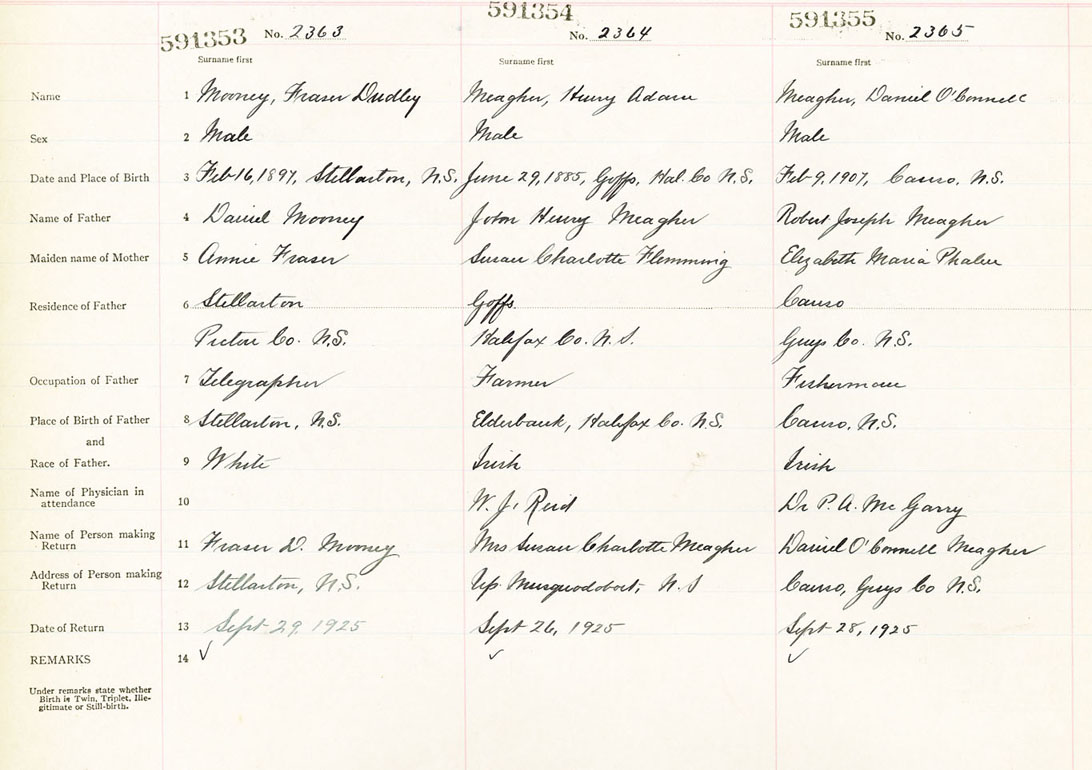 591353 No. 2363 591354 No. 2364 591355 No. 2365
Surname first Surname first Surname first
Name 1 Mooney, Fraser Dudley Meagher, Henry Adam Meagher, Daniel O'Connell
Sex 2 Male Male Male
Date and Place of Birth 3 Feb 16, 1897, Stellarton, N.S. June 29, 1885, Goffs, Hal. Co N.S. Feb 9, 1907, Canso, N.S.
Name of Father 4 Daniel Mooney John Henry Meagher Robert Joseph Meagher
Maiden name of Mother 5 Annie Fraser Susan Charlotte Flemming Elizabeth Maria Phalen
Residence of Father 6 Stellarton Goffs. Canso
Pictou Co. N.S. Halifax Co. N.S. Guys Co. N.S.
Occupation of Father 7 Telegrapher Farmer Fisherman
Place of Birth of Father 8 Stellarton, N.S. Elderbank, Halifax Co. N.S. Canso, N.S.
and
Race of Father. 9 White Irish Irish
Name of Physician in
attendance 10 W. J. Reid Dr P. A. McGarry
Name of Person making
Return 11 Fraser D. Mooney Mrs Susan Charlotte Meagher Daniel O'Connell Meagher
Address of Person making
Return 12 Stellarton, N.S. Up. Musquodoboit, N.S Canso, Guys Co N.S.
Date of Return 13 Sept 29, 1925 Sept 26, 1925 Sept 28, 1925
REMARKS 14 ✓ ✓ ✓
Under remarks state whether
Birth is Twin, Triplet, Ille-
gitimate or Still-birth.